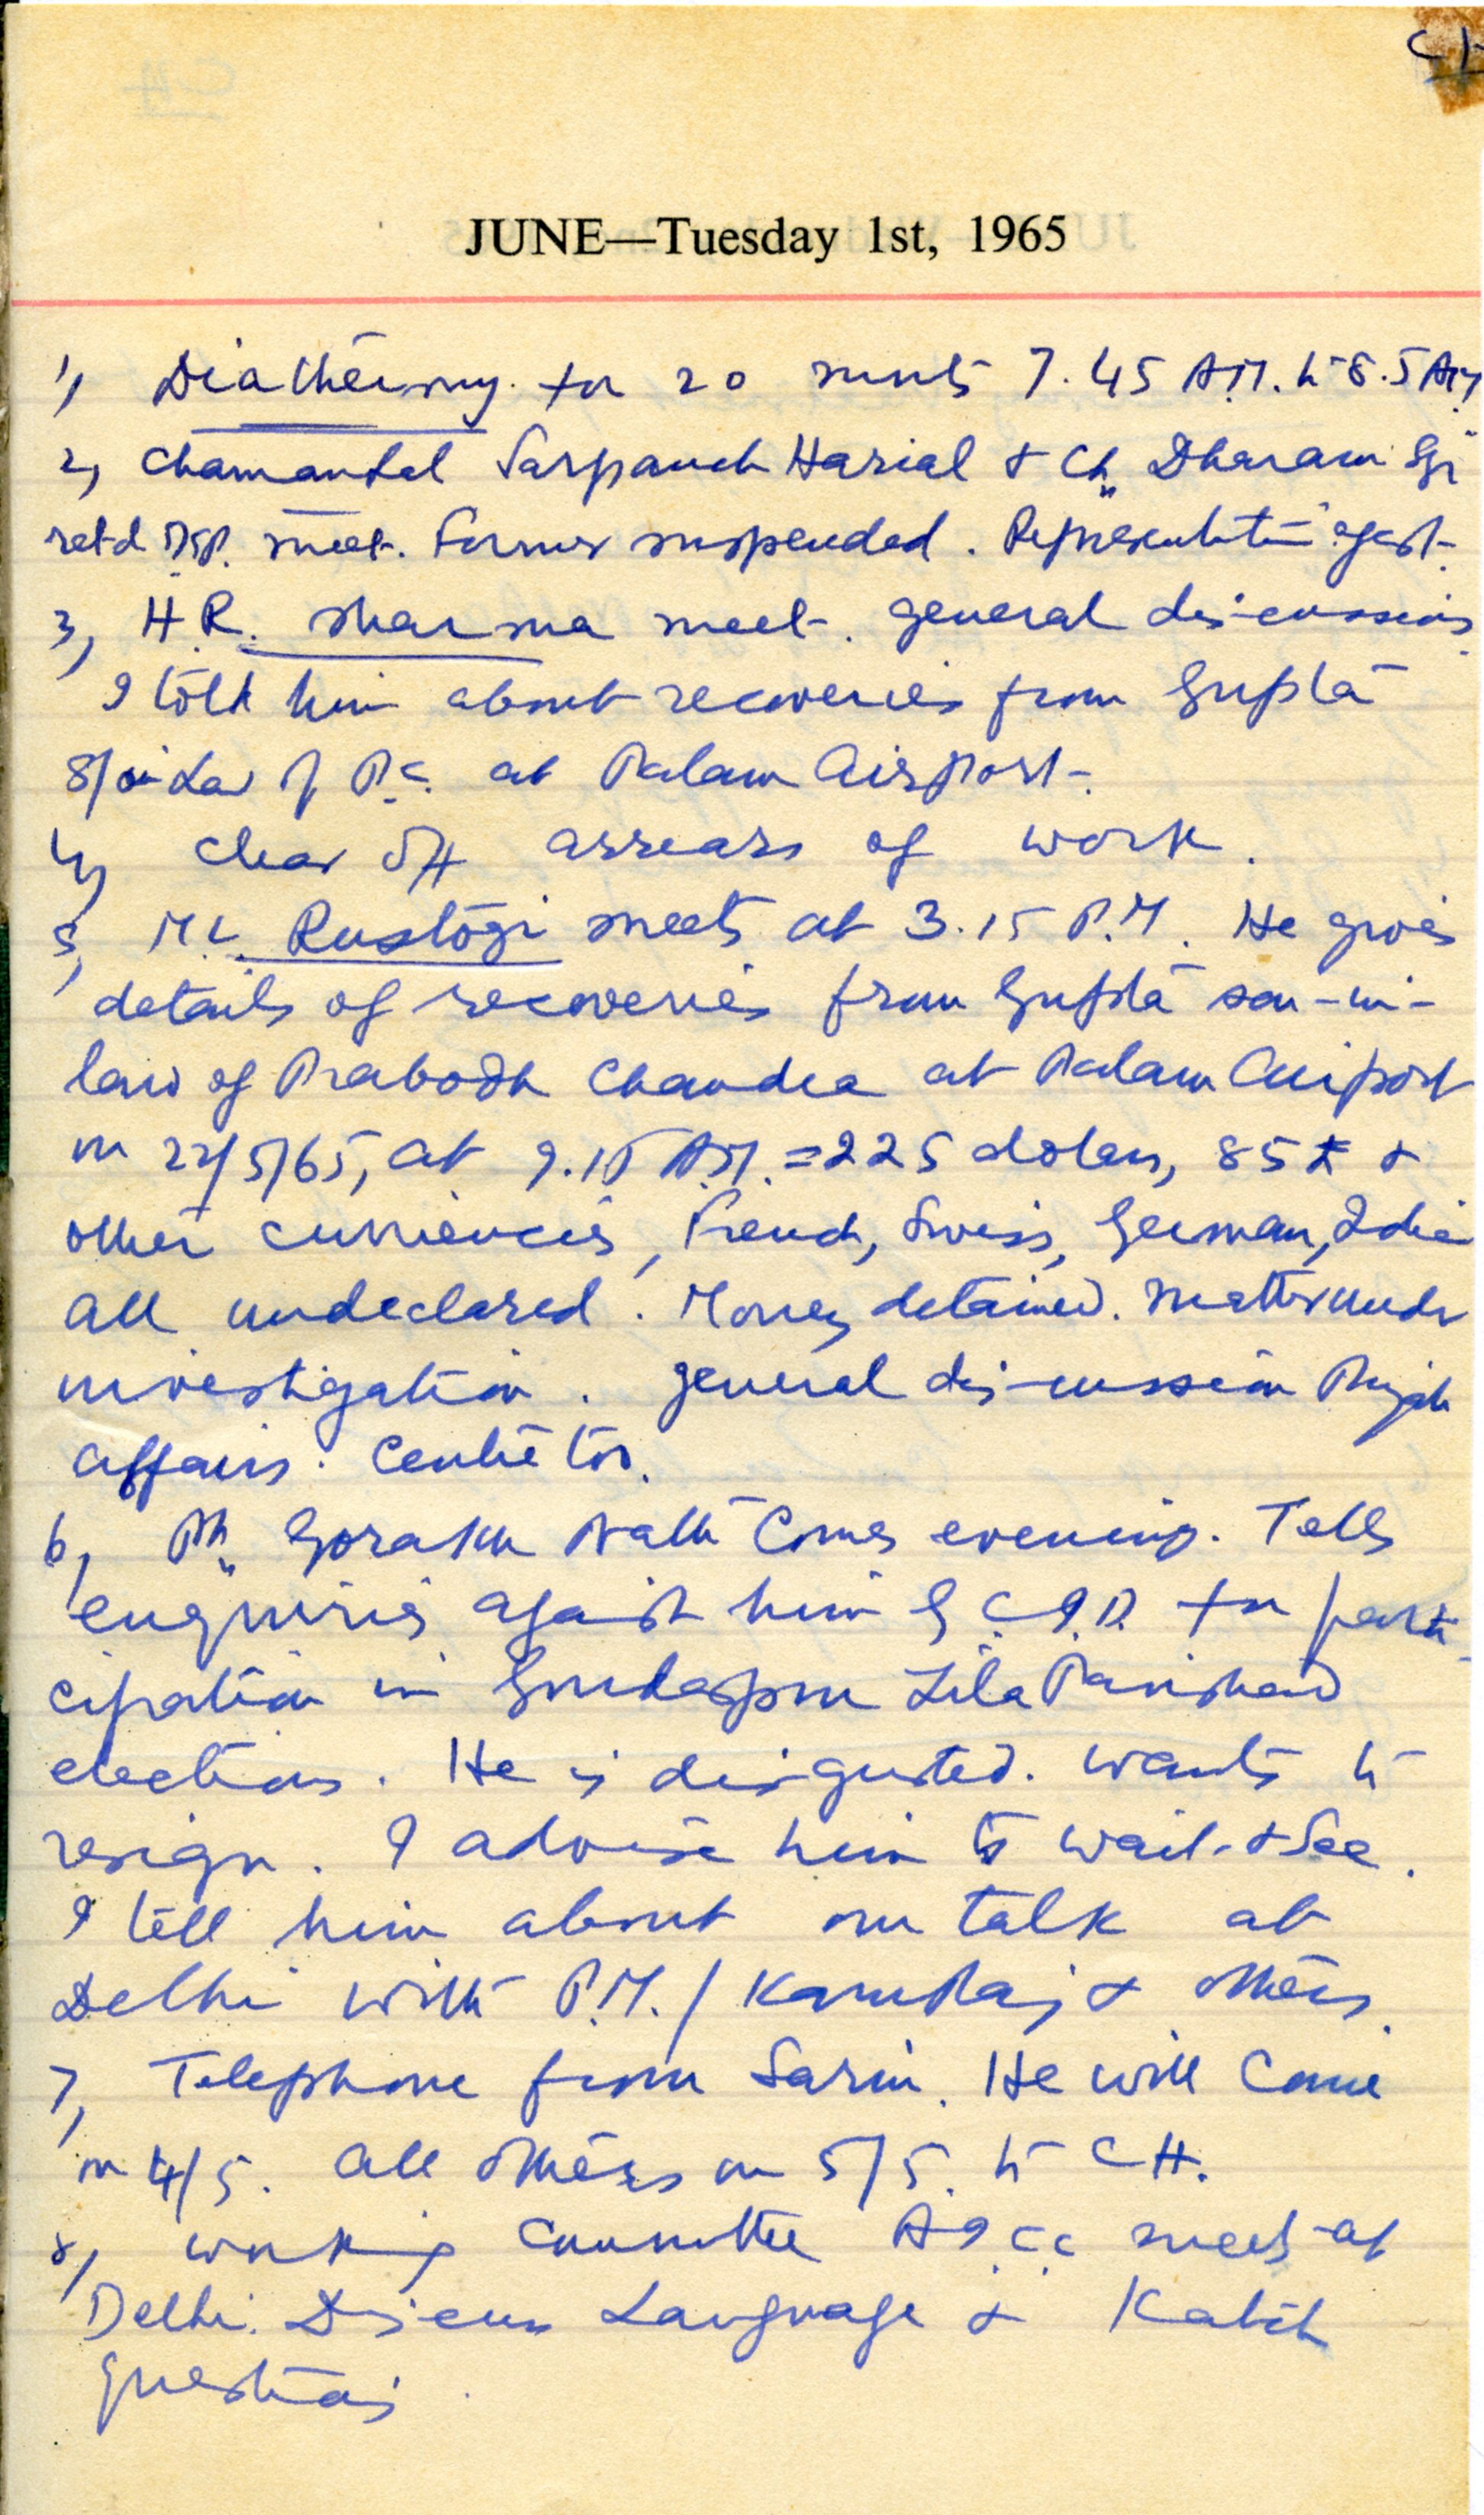 CH
JUNE—Tuesday 1st, 1965
1) Diathermy for 20 minuts 7.45 A.M. to 8.5 AM
2) Chamanlal Sarpanch Harial & Ch. Dharam
retd DSP. meet. Former suspended. Representation agst.
3) H.R. Sharma meet. General discussions.
I told him about recoveries from Gupta
S/in Law of P.C. at Palam Airport.
4) Clear off arrears of work.
5) M.L. Rustogi meets at 3.15 P.M. He gives
details of recoveries from Gupta son-in-
law of Prabodh Chandra at Palam Airport
on 22/5/65, at A.M. = 225 dolars, 85 £ &
other curriencies, French, Swiss, German, India
all undeclared. Money detained. Matter under
investigation. General discussion Punjab
affairs. Centre too.
6) Pt. Gorakh Nath comes evening. Tells
enquiries against him by C.I.D. for parti-
cipation in Gurdaspur Zila Parishad
elections. He is disgusted. Wants to
resign. I advise him to wait & See.
I tell him about our talk at
Delhi with P.M./KamRaj & others.
7) Telephone from Sarin. He will come
on 4/5. All others on 5/5. to CH.
8) Working Committee A.I.C.C. meets at
Delhi. Discuss Language & Katch
questions.